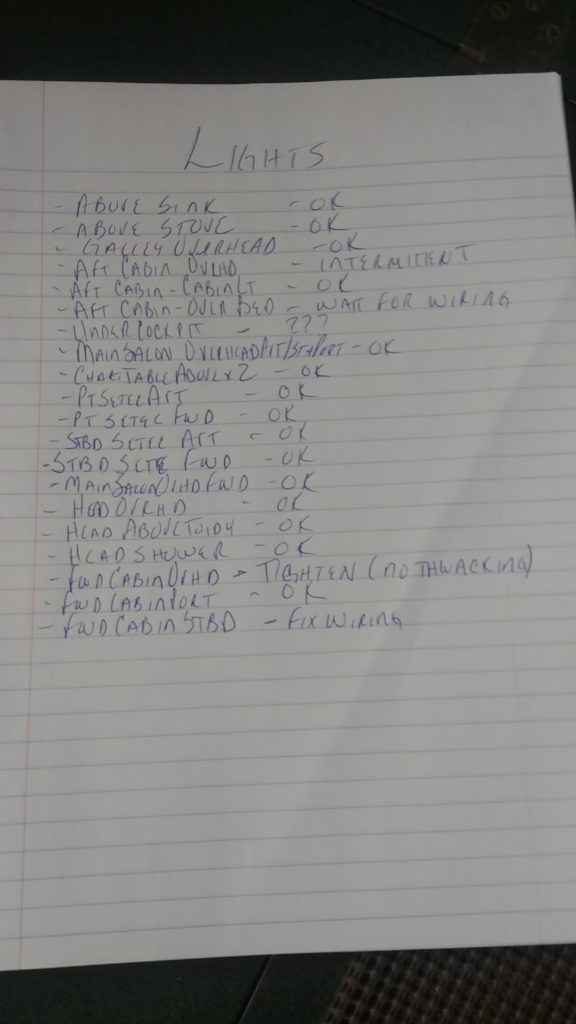 LIGHTS
- ABOVE SINK - OK
- ABOVE STOVE - OK
- GALLEY OVERHEAD - OK
- AFT CABIN OVRHD - INTERMITTENT
- AFT CABIN - CABINET - OK
- AFT CABIN - OVER BED - WAIT FOR WIRING
- UNDER COCKPIT - ???
- MAIN SALON OVERHEAD AFT/ - OK
- CHART TABLE ABOVE X 2 - OK
- PT SETEE AFT - OK
- PT SETEE FWD - OK
- STBD SETEE AFT - OK
- STBD SETEE FWD - OK
- MAIN SALON OVRHD FWD - OK
- HEAD OVRHD - OK
- HEAD ABOVE - OK
- HEAD SHOWER - OK
- FWD CABIN OVHD - TIGHTEN (NO THWACKING)
- FWD CABIN PORT - OK
- FWD CABIN STBD - FIX WIRING